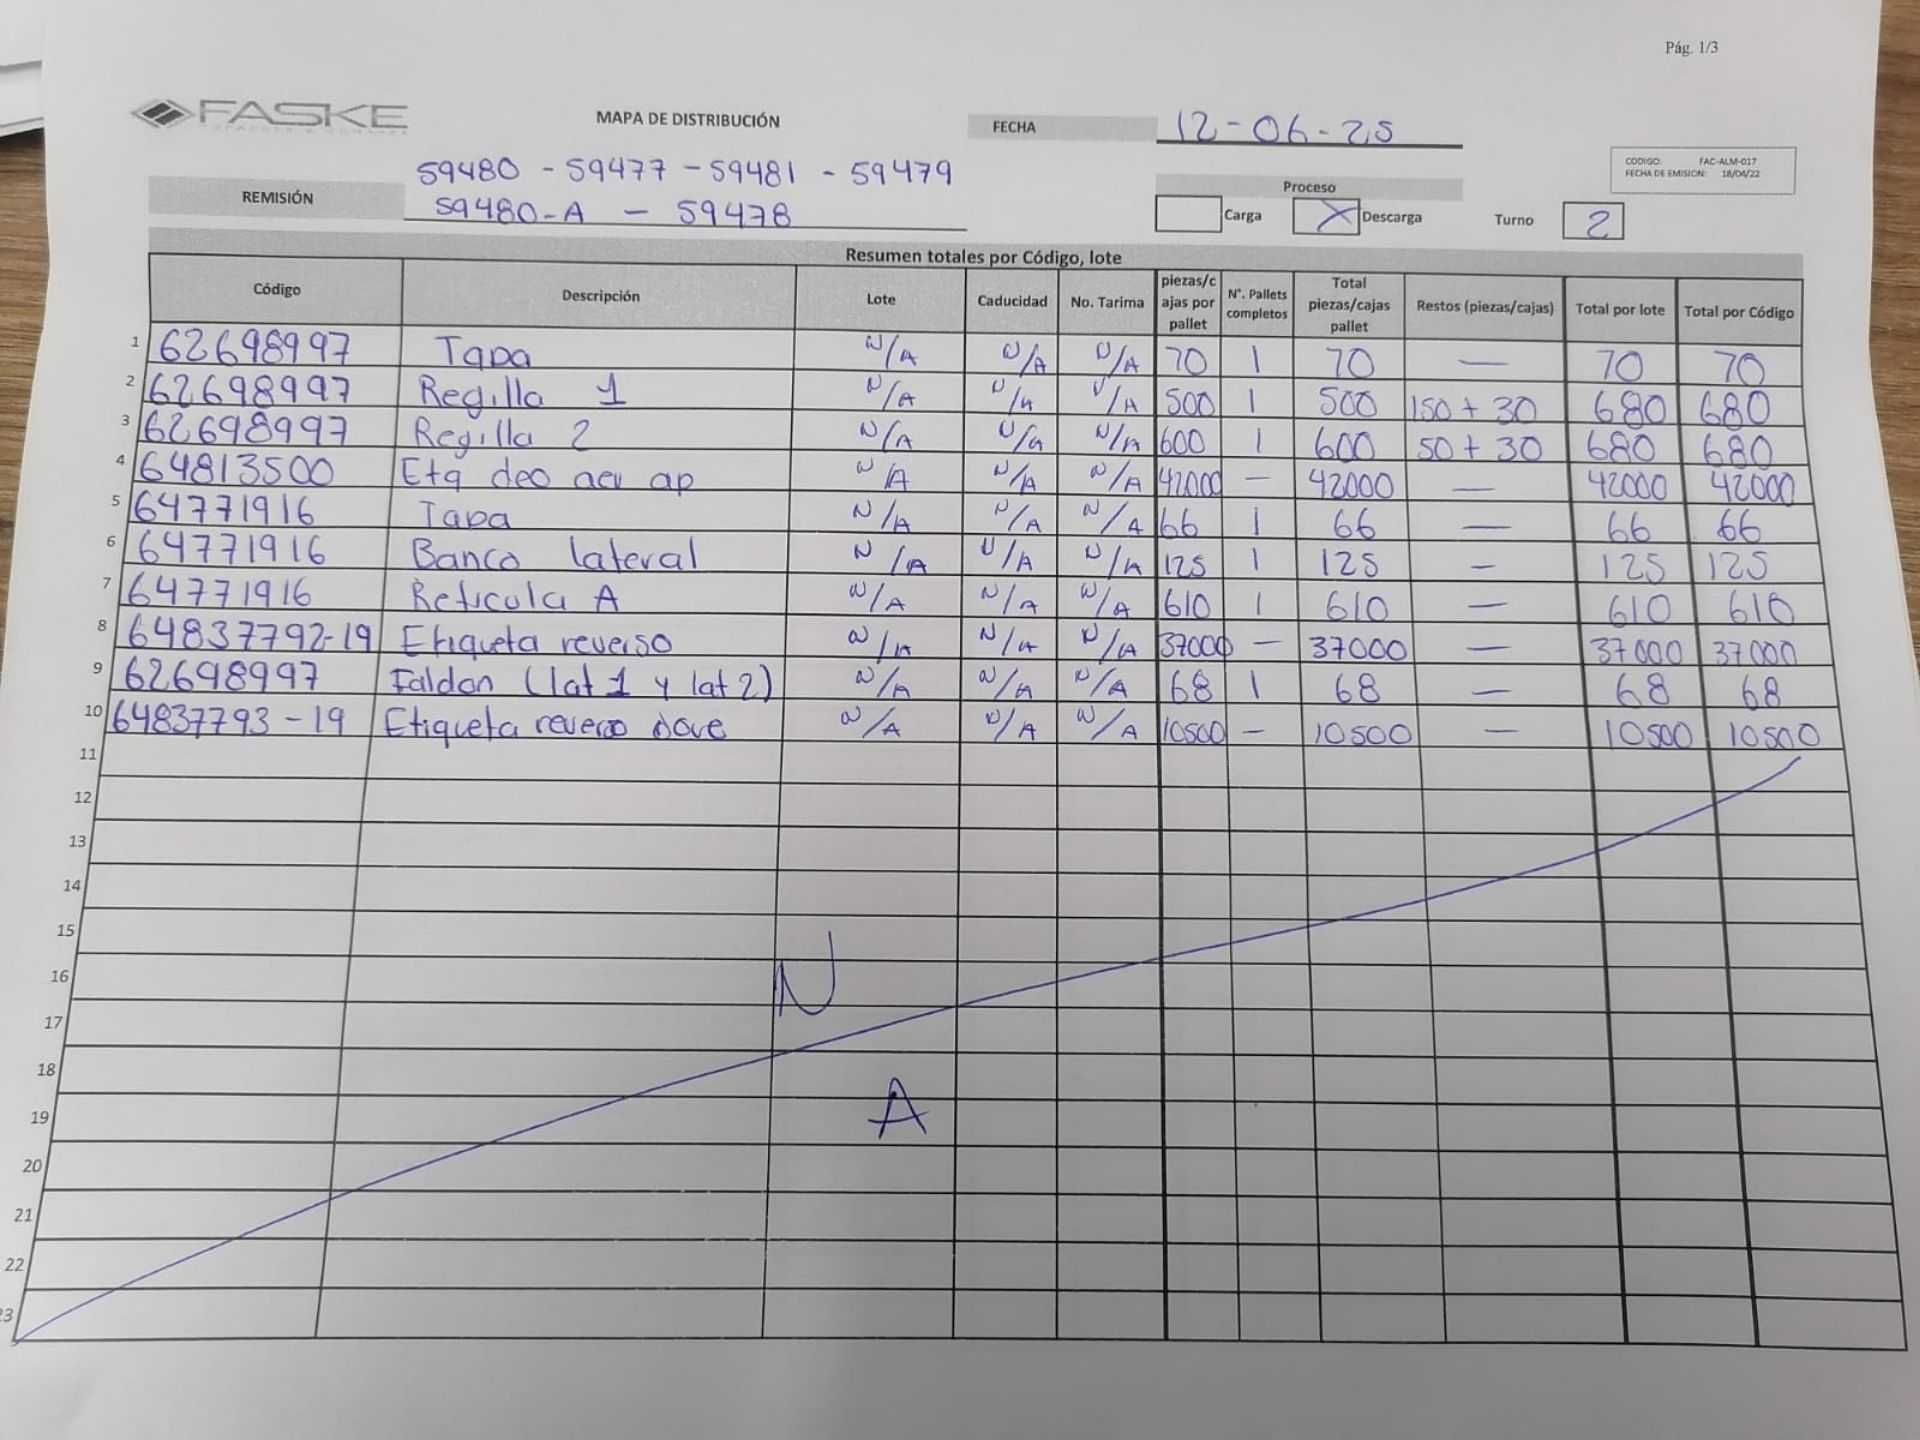 Pág. 1/3
FASKE
MAPA DE DISTRIBUCIÓN
FECHA 12-06-25
CODIGO: FAC-ALM-017
FECHA DE EMISION: 18/04/22
REMISIÓN 59480 - 59477 - 59481 - 59479
59480-A - 59478
Proceso
Carga X Descarga Turno 2
Resumen totales por Código, lote
Código Descripción Lote Caducidad No. Tarima piezas/cajas por pallet N°. Pallets completos Total piezas/cajas pallet Restos (piezas/cajas) Total por lote Total por Código
1 62698997 Tapa N/A N/A N/A 70 1 70 — 70 70
2 62698997 Regilla 1 N/A N/A N/A 500 1 500 150 + 30 680 680
3 62698997 Regilla 2 N/A N/A N/A 600 1 600 50 + 30 680 680
4 64813500 Etq deo aer ap N/A N/A N/A 42000 — 42000 — 42000 42000
5 64771916 Tapa N/A N/A N/A 66 1 66 — 66 66
6 64771916 Banco lateral N/A N/A N/A 125 1 125 — 125 125
7 64771916 Reticula A N/A N/A N/A 610 1 610 — 610 610
8 64837792-19 Etiqueta reverso N/A N/A N/A 37000 — 37000 — 37000 37000
9 62698997 Faldon (lat 1 y lat 2) N/A N/A N/A 68 1 68 — 68 68
10 64837793-19 Etiqueta reverso dove N/A N/A N/A 10500 — 10500 — 10500 10500
11
12
13
14
15
16
N
17
18
19
A
20
21
22
23